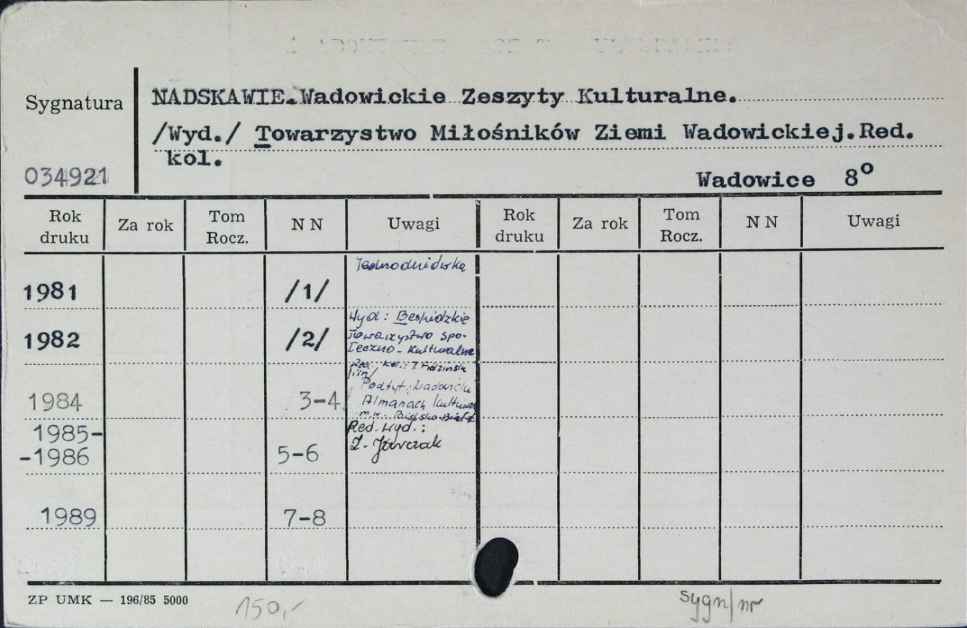 Sygnatura
NADSKAWIE.Wadowickie Zeszyty Kulturalne.
/Wyd./ Towarzystwo Miłośników Ziemi Wadowickiej.Red.
kol.
034921
Wadowice 8°
Rok druku Za rok Tom Rocz. NN Uwagi Rok druku Za rok Tom Rocz. NN Uwagi
Jednodniówka
1981 /1/
Wyd: Beskidzkie
1982 /2/ Towarzystwo Spo-
łeczno-Kulturalne
Podtyt.: Wadowicki
1984 3-4 Almanach Kultural
Red. wyd.:
1985-
-1986 5-6 Z. Jurczak
1989 7-8
ZP UMK — 196/85 5000
150,-
sygn/nr